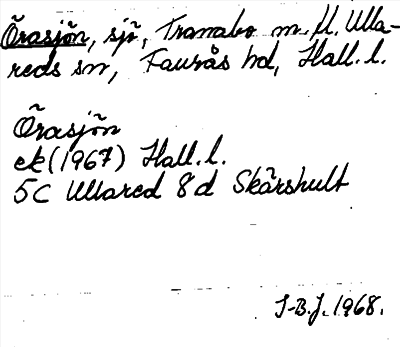 Örasjön, sjö, Tranabo m.fl. Ulla-
reds sn, Faurås hd, Hall. l.
Örasjön
ek (1967) Hall. l.
5C Ullared 8d Skärshult
I-B.J. 1968.